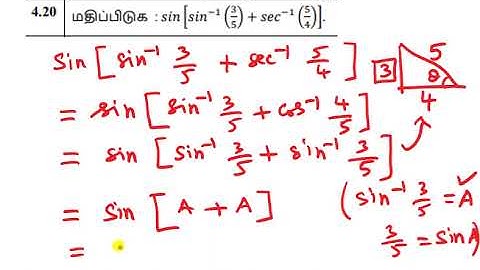 4.20 மதிப்பிடுக : sin [sin⁻¹ (3/5) + sec⁻¹ (5/4)].
Sin [ sin⁻¹ 3/5 + sec⁻¹ 5/4 ] 3 5 θ 4
= sin [ sin⁻¹ 3/5 + cos⁻¹ 4/5 ]
= sin [ sin⁻¹ 3/5 + sin⁻¹ 3/5 ]
= sin [ A + A ] ( sin⁻¹ 3/5 = A
= 3/5 = sin A )